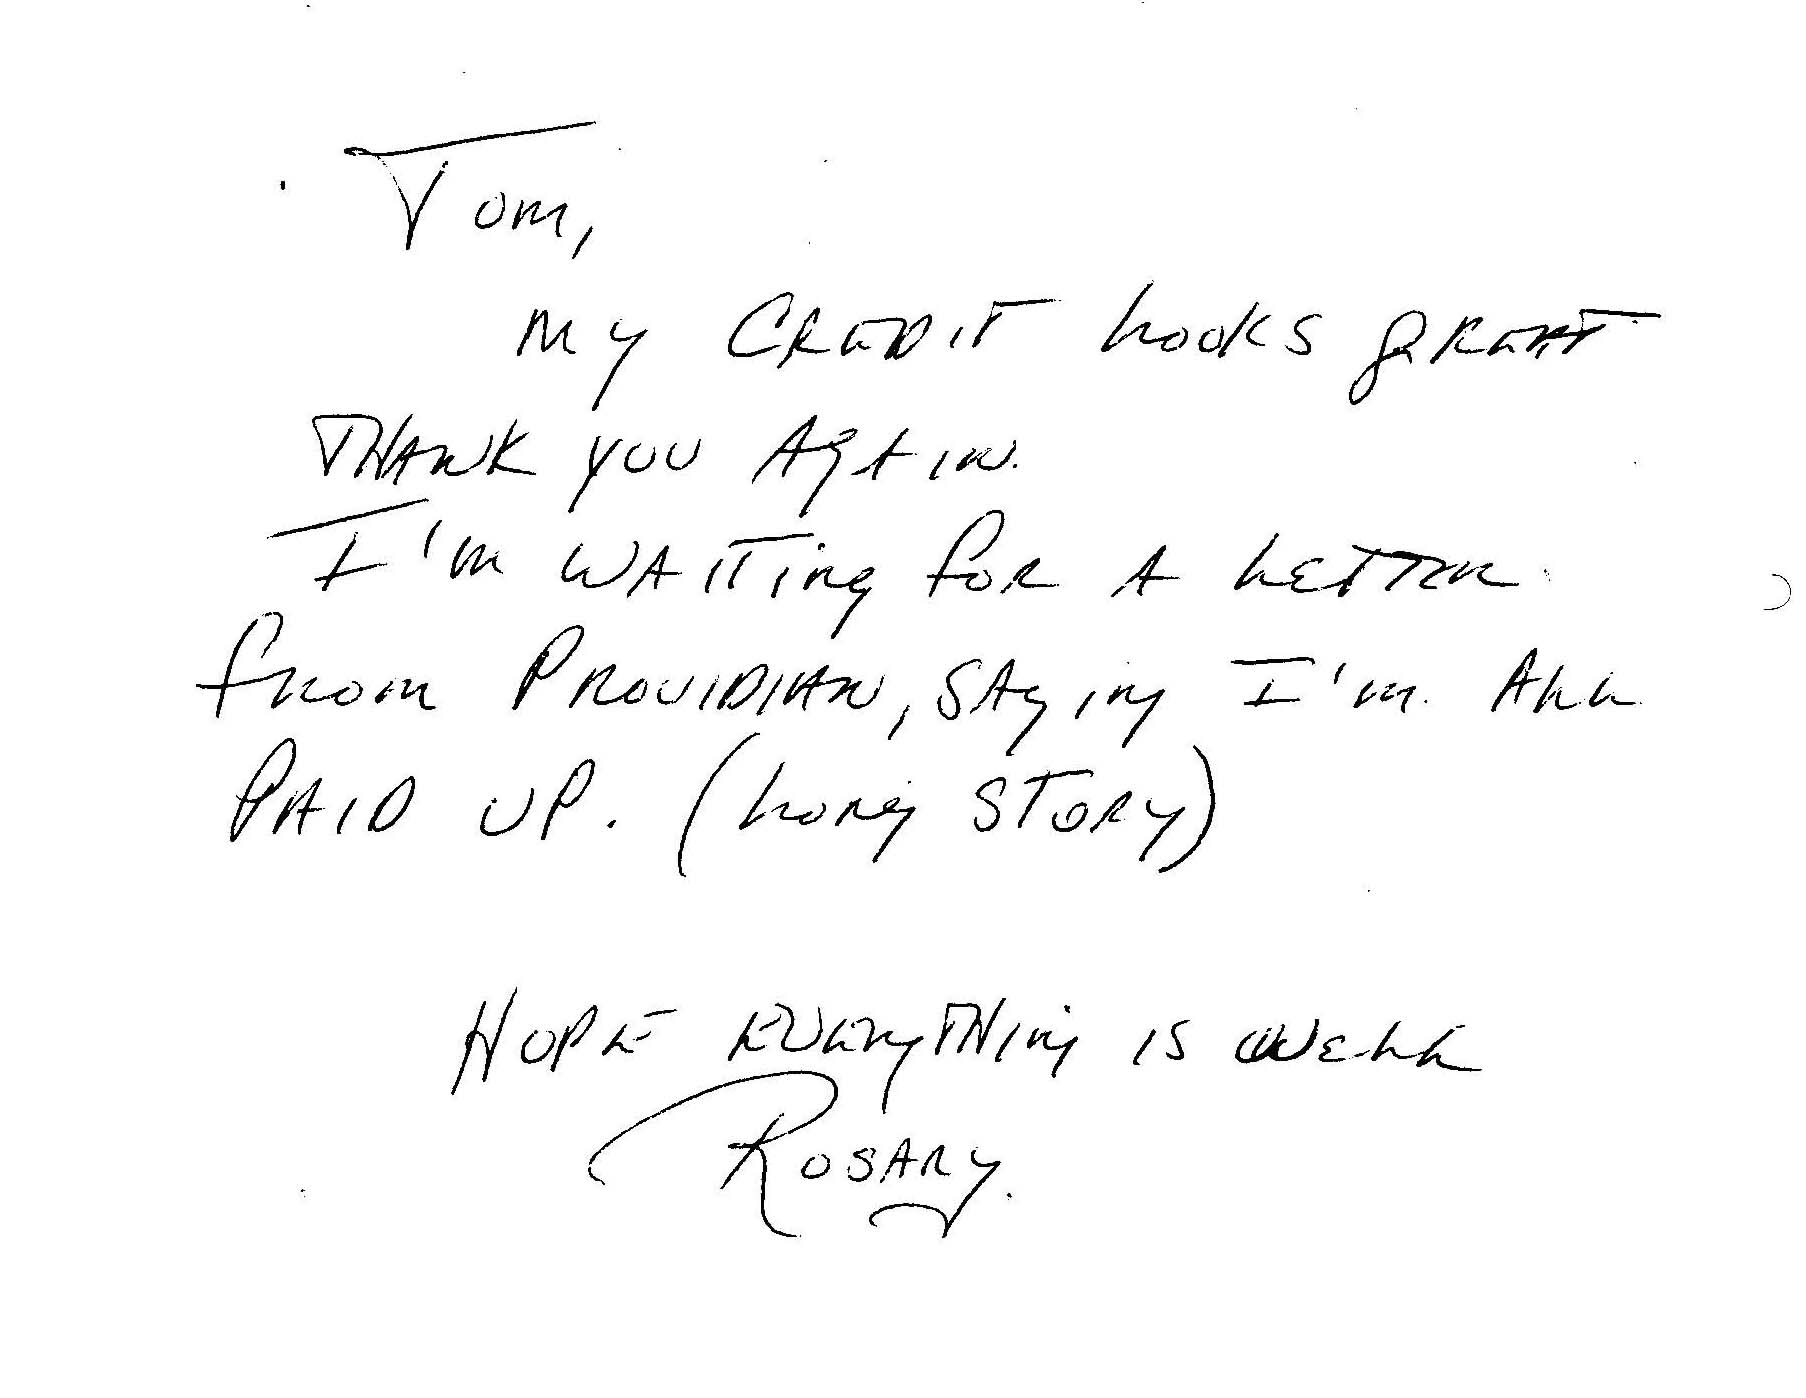 Tom,
My CREDIT Looks gREAT
THANK YOU AgAin.
I'm WAITing for A LETTER
from PROVIDIAN, SAying I'm ALL
PAID UP. (Long STORY)
HOPE EVERyTHing is WELL
ROSARY.